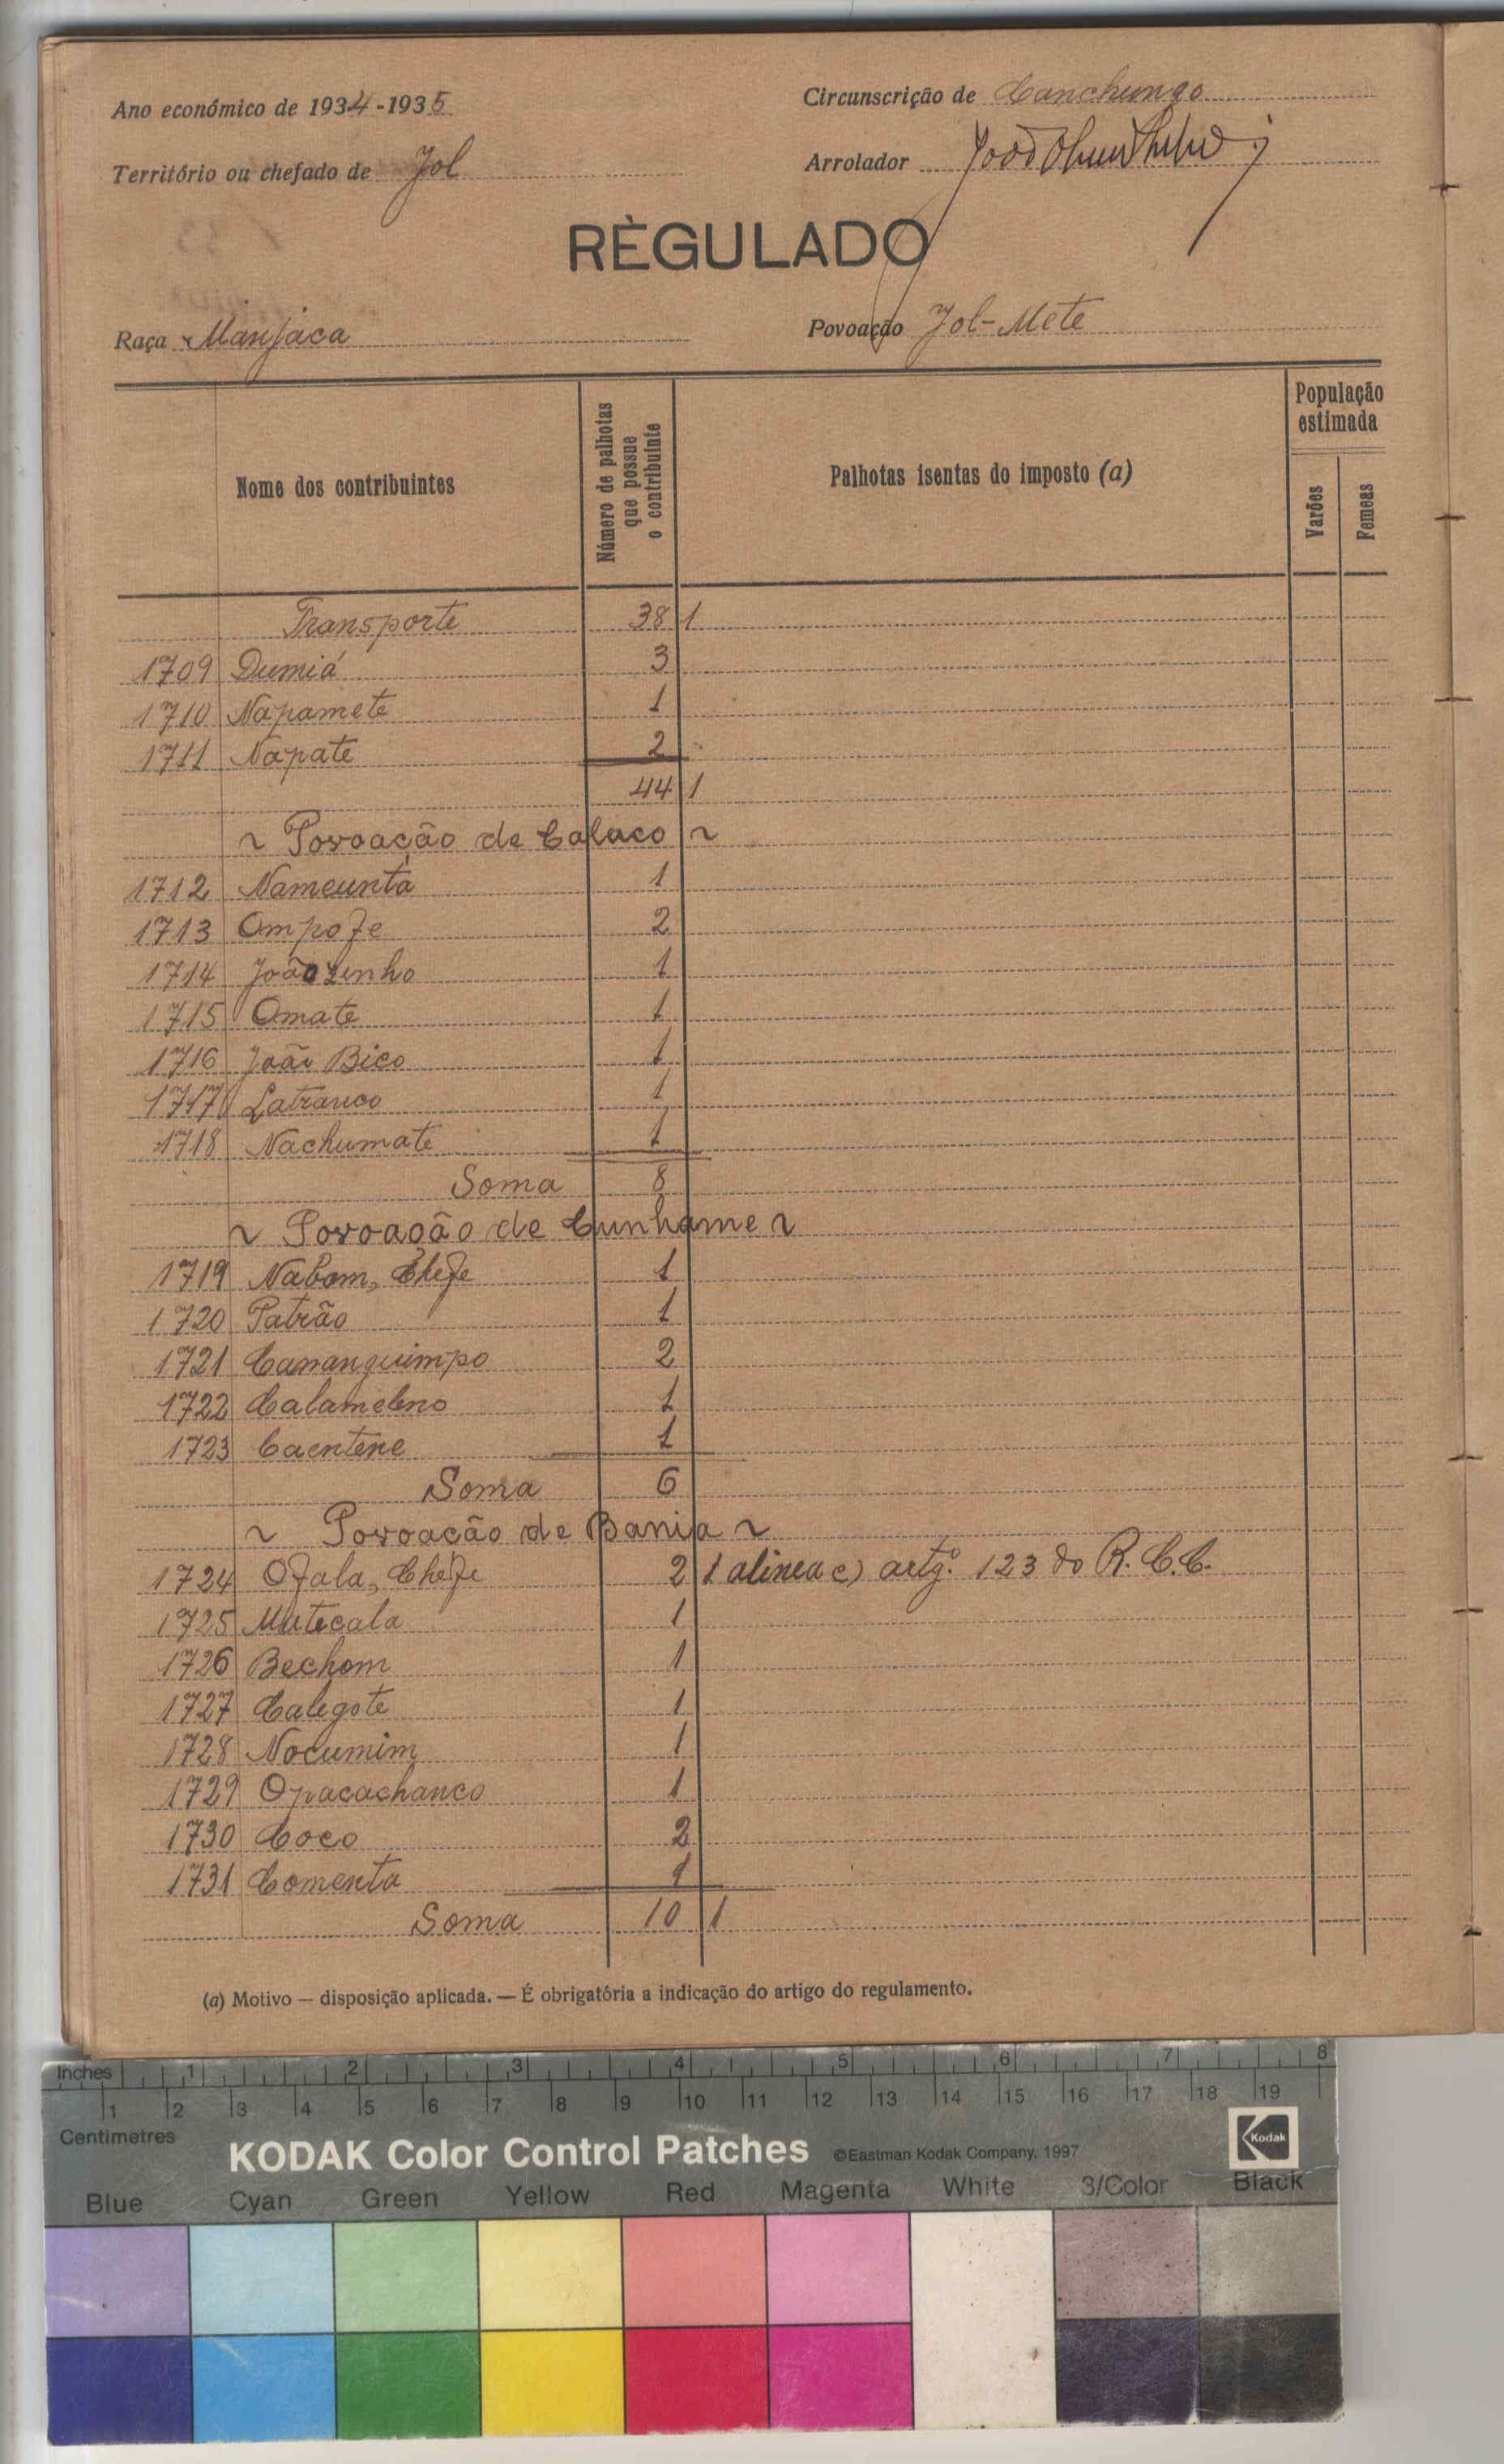 Ano económico de 1934-1935
Circunscrição de Canchungo
Território ou chefado de Jol
Arrolador
RÈGULADO
Raça Manjaca
Povoação Jol-Mete
Nome dos contribuintes
Número de palhotas que possue o contribuinte
Palhotas isentas do imposto (a)
População estimada
Varões
Femeas
Transporte 38 1
1709 Dumiá 3
1710 Napamete 1
1711 Napate 2
44 1
~ Povoação de Calaco ~
1712 Nameunta 1
1713 Ompofe 2
1714 Joãozinho 1
1715 Omate 1
1716 João Bico 1
1717 Latranco 1
1718 Nachumate 1
Soma 8
~ Povoação de Cunhame ~
1719 Nabom, Chefe 1
1720 Patrão 1
1721 Cananquimpo 2
1722 1
1723 Caentene 1
Soma 6
~ Povoação de Bania ~
1724 Ofala, Chefe 2 1 alinea c) artg.º 123 do R. C. C.
1725 Mutecala 1
1726 Bechom 1
1727 Calegote 1
1728 Nocumim 1
1729 Opacachanco 1
1730 Coco 2
1731 Comenta 1
Soma 10 1
(a) Motivo — disposição aplicada. — É obrigatória a indicação do artigo do regulamento.
Inches 1 2 3 4 5 6 7 8
1 2 3 4 5 6 7 8 9 10 11 12 13 14 15 16 17 18 19
Centimetres
KODAK Color Control Patches ©Eastman Kodak Company, 1997 Kodak
Blue Cyan Green Yellow Red Magenta White 3/Color Black